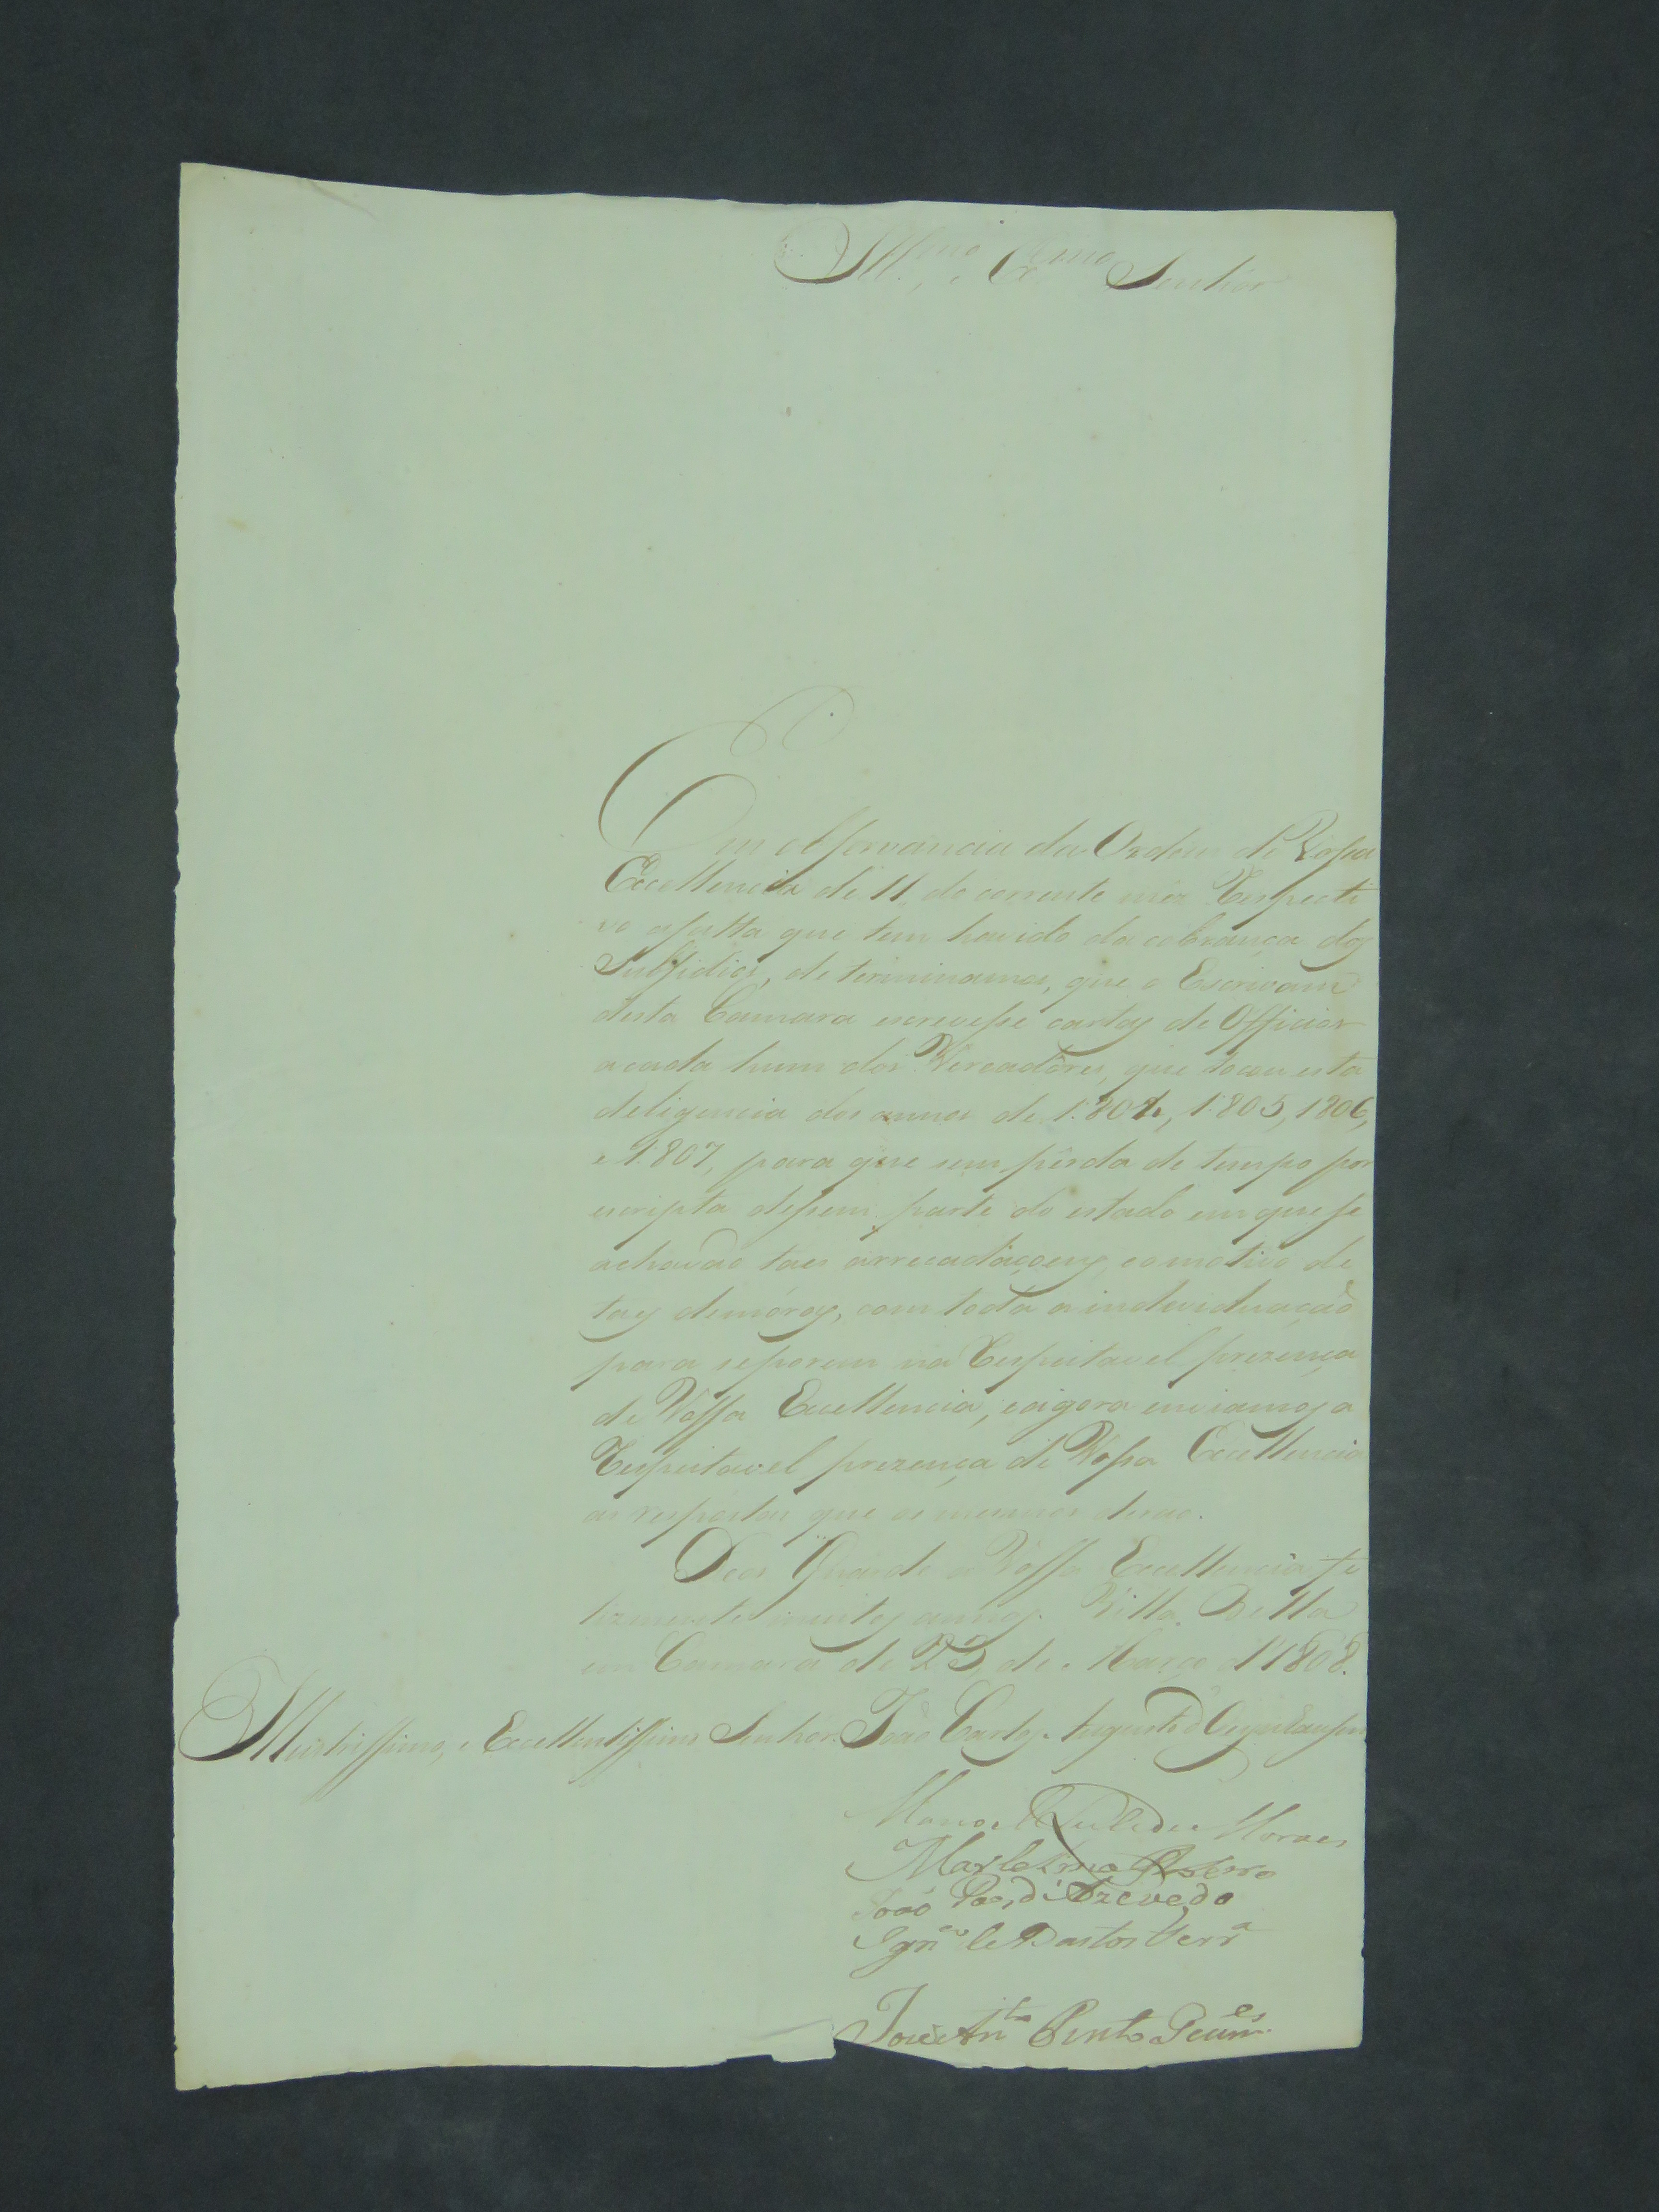 Ill.mo, e Ex.mo Senhor
Em observancia da Ordem de Vossa
Excellencia de 11 do corrente mez Respecti
vo afalta que tem havido da cobrança dos
Subsidios, determinamos, que o Escrivam
desta Camara escrevesse cartas de Officios
acada hum dos Vereadôres, que tocou esta
deligencia dos annos de 1.804, 1.805, 1806,
e 1.807, para que sem pêrda de tempo por
escripta dessem parte do estado em que se
achavaõ taes arrecadaçoens, eomotivo de
tas demóras, com toda a individuaçaõ
para seporem na Respeitavel prezença
de Vossa Excellencia, eagora enviamos a
Respeitavel prezença de Vossa Excellencia
as respostas que os mesmos deraõ.
Deos Guarde a Vossa Excellencia fe
lizmente muitos annos. Villa Bella
em Camara de 23 de Março d'1808.
Illustrissimo, e Excellentissimo Senhor. Joaõ Carlos Augusto d'Oeynhausen
Manoel Moraes
João Paes d'Azevedo
Ign.co de Bastos Ferr.a
Joze Ant.o Pinto